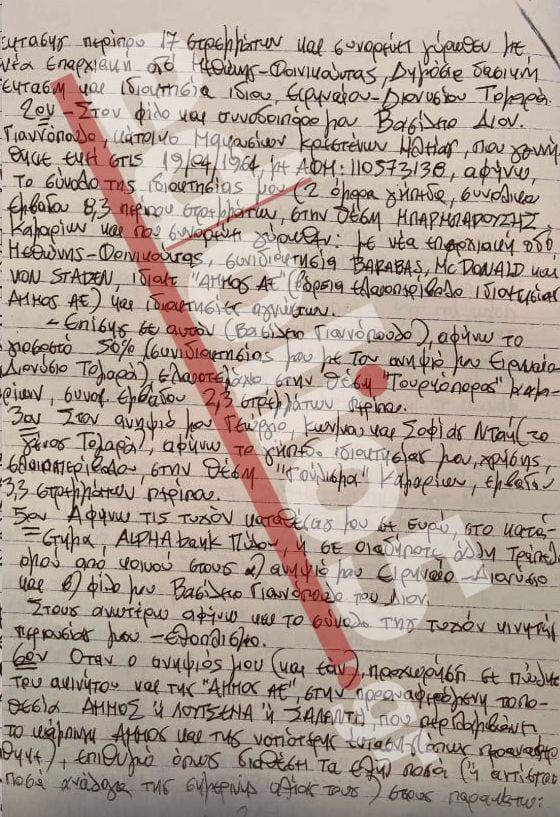 εκτασης περίπου 17 στρεμμάτων και συνορεύει γύρωθεν με
νέα επαρχιακή οδό Μεθώνης-Φοινικούντας, Δημόσια δασική
έκταση και ιδιοκτησία ιδίου, Ειρηναίου-Διονυσίου Τομαρά.
2ον - Στον φίλο και συνοδοιπόρο μου Βασίλειο Διον.
Γιαννόπουλο, κάτοικο Μακρισίων Κρεστένων Ηλείας, που γενν
ήθηκε στις 19/04/1964, με ΑΦΜ: 110573138, αφήνω
το σύνολο της ιδιοκτησίας μου (2 όμορα γήπεδα, συνολικού
εμβαδού 8,3 περίπου στρεμμάτων, στην θέση ΜΠΑΡΜΠΑΡΟΥΣΗΣ
Καμαρίων και που συνορεύει γύρωθεν: με νέα επαρχιακή οδό
Μεθώνης-Φοινικούντας, συνιδιοκτησία BARABAS, McDONALD και
VON STADEN, ιδιοκτ. "ΑΜΜΟΣ ΑΕ" (βόρεια ελαιοπερίβολο ιδιοκτησίας
ΑΜΜΟΣ ΑΕ) και ιδιοκτησίες αγνώστων.
- Επίσης σε αυτόν (Βασίλειο Γιαννόπουλο), αφήνω το
ποσοστό 50% (συνιδιοκτησίας μου με τον ανηψιό μου Ειρηναίο
Διονύσιο Τομαρά) ελαιοτεμάχιο στην θέση "Τουρκόπορος" Καμα-
ρίων, συνολ. εμβαδού 2,3 στρεμμάτων περίπου.
3ον Στον ανηψιό μου Γεώργιο, Κων/νου και Σοφίας Ντάη (το
γένος Τομαρά), αφήνω το γήπεδο ιδιοκτησίας μου, χρήσης
ελαιοπερίβολου, στην θέση Καμαρίων, εμβαδού
3,3 στρεμμάτων περίπου.
5ον Αφήνω τις τυχόν καταθέσεις μου σε Ευρώ, στο κατά-
στημα, ALPHA bank Πύλου, ή σε οιαδήποτε άλλη Τράπεζα
όμού από κοινού στους α) ανηψιό μου Ειρηναίο-Διονύσιο
και β) φίλο μου Βασίλειο Γιαννόπουλο του Διον.
Στους ανωτέρω αφήνω και το σύνολο της τυχόν κινητής
περιουσίας μου - εξοπλισμό.
6ον Όταν ο ανηψιός μου (και εάν), προχωρήση σε πώληση
του ακινήτου και της "ΑΜΜΟΣ ΑΕ", στην προαναφερθείσα τοπο-
θεσία ΑΜΜΟΣ ή ΛΟΥΤΣΕΝΑ ή ΣΑΛΑΝΤΗ, που περιλαμβάνει
το κάμπινγκ ΑΜΜΟΣ και της νοτιότερης έκτασης (όπως προαναφέρ
θηκε), επιθυμώ όπως διαθέση τα εξής ποσά (ή αντίστοιχα
ποσά ανάλογα της σημερινής αξίας τους) στους παρακάτω: